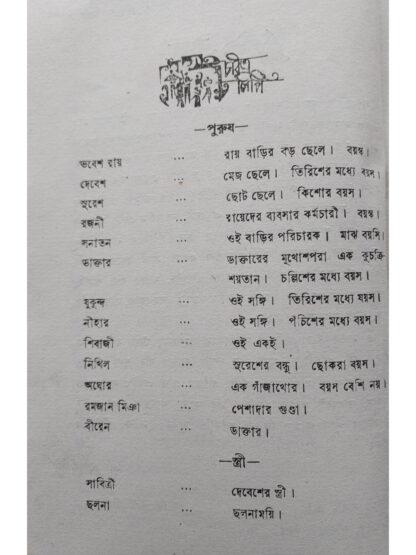 চরিত্র
লিপি
—পুরুষ—
ভবেশ রায় ... রায় বাড়ির বড় ছেলে। বয়স্ক।
দেবেশ ... মেজ ছেলে। তিরিশের মধ্যে বয়স।
সুরেশ ... ছোট ছেলে। কিশোর বয়স।
রজনী ... রায়েদের ব্যবসার কর্মচারী। বয়স্ক।
সনাতন ... ওই বাড়ির পরিচারক। মাঝ বয়সি।
ডাক্তার ... ডাক্তারের মুখোশপরা এক কুচক্রি
শয়তান। চল্লিশের মধ্যে বয়স।
মুকুন্দ ... ওই সঙ্গি। তিরিশের মধ্যে বয়স।
নীহার ... ওই সঙ্গি। পঁচিশের মধ্যে বয়স।
শিবাজী ... ওই একই।
নিখিল ... সুরেশের বন্ধু। ছোকরা বয়স।
অঘোর ... এক গাঁজাখোর। বয়স বেশি নয়।
রমজান মিঞা ... পেশাদার গুণ্ডা।
বীরেন ... ডাক্তার।
—স্ত্রী—
সাবিত্রী ... দেবেশের স্ত্রী।
ছলনা ... ছলনাময়ি।